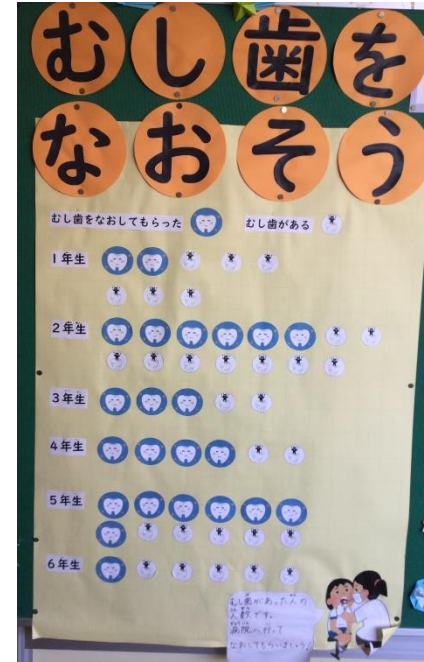 むし歯を
なおそう
むし歯をなおしてもらった むし歯がある
1年生
2年生
3年生
4年生
5年生
6年生
むし歯があった人の
人数です。
病院へ行って
なおしてもらいましょう!